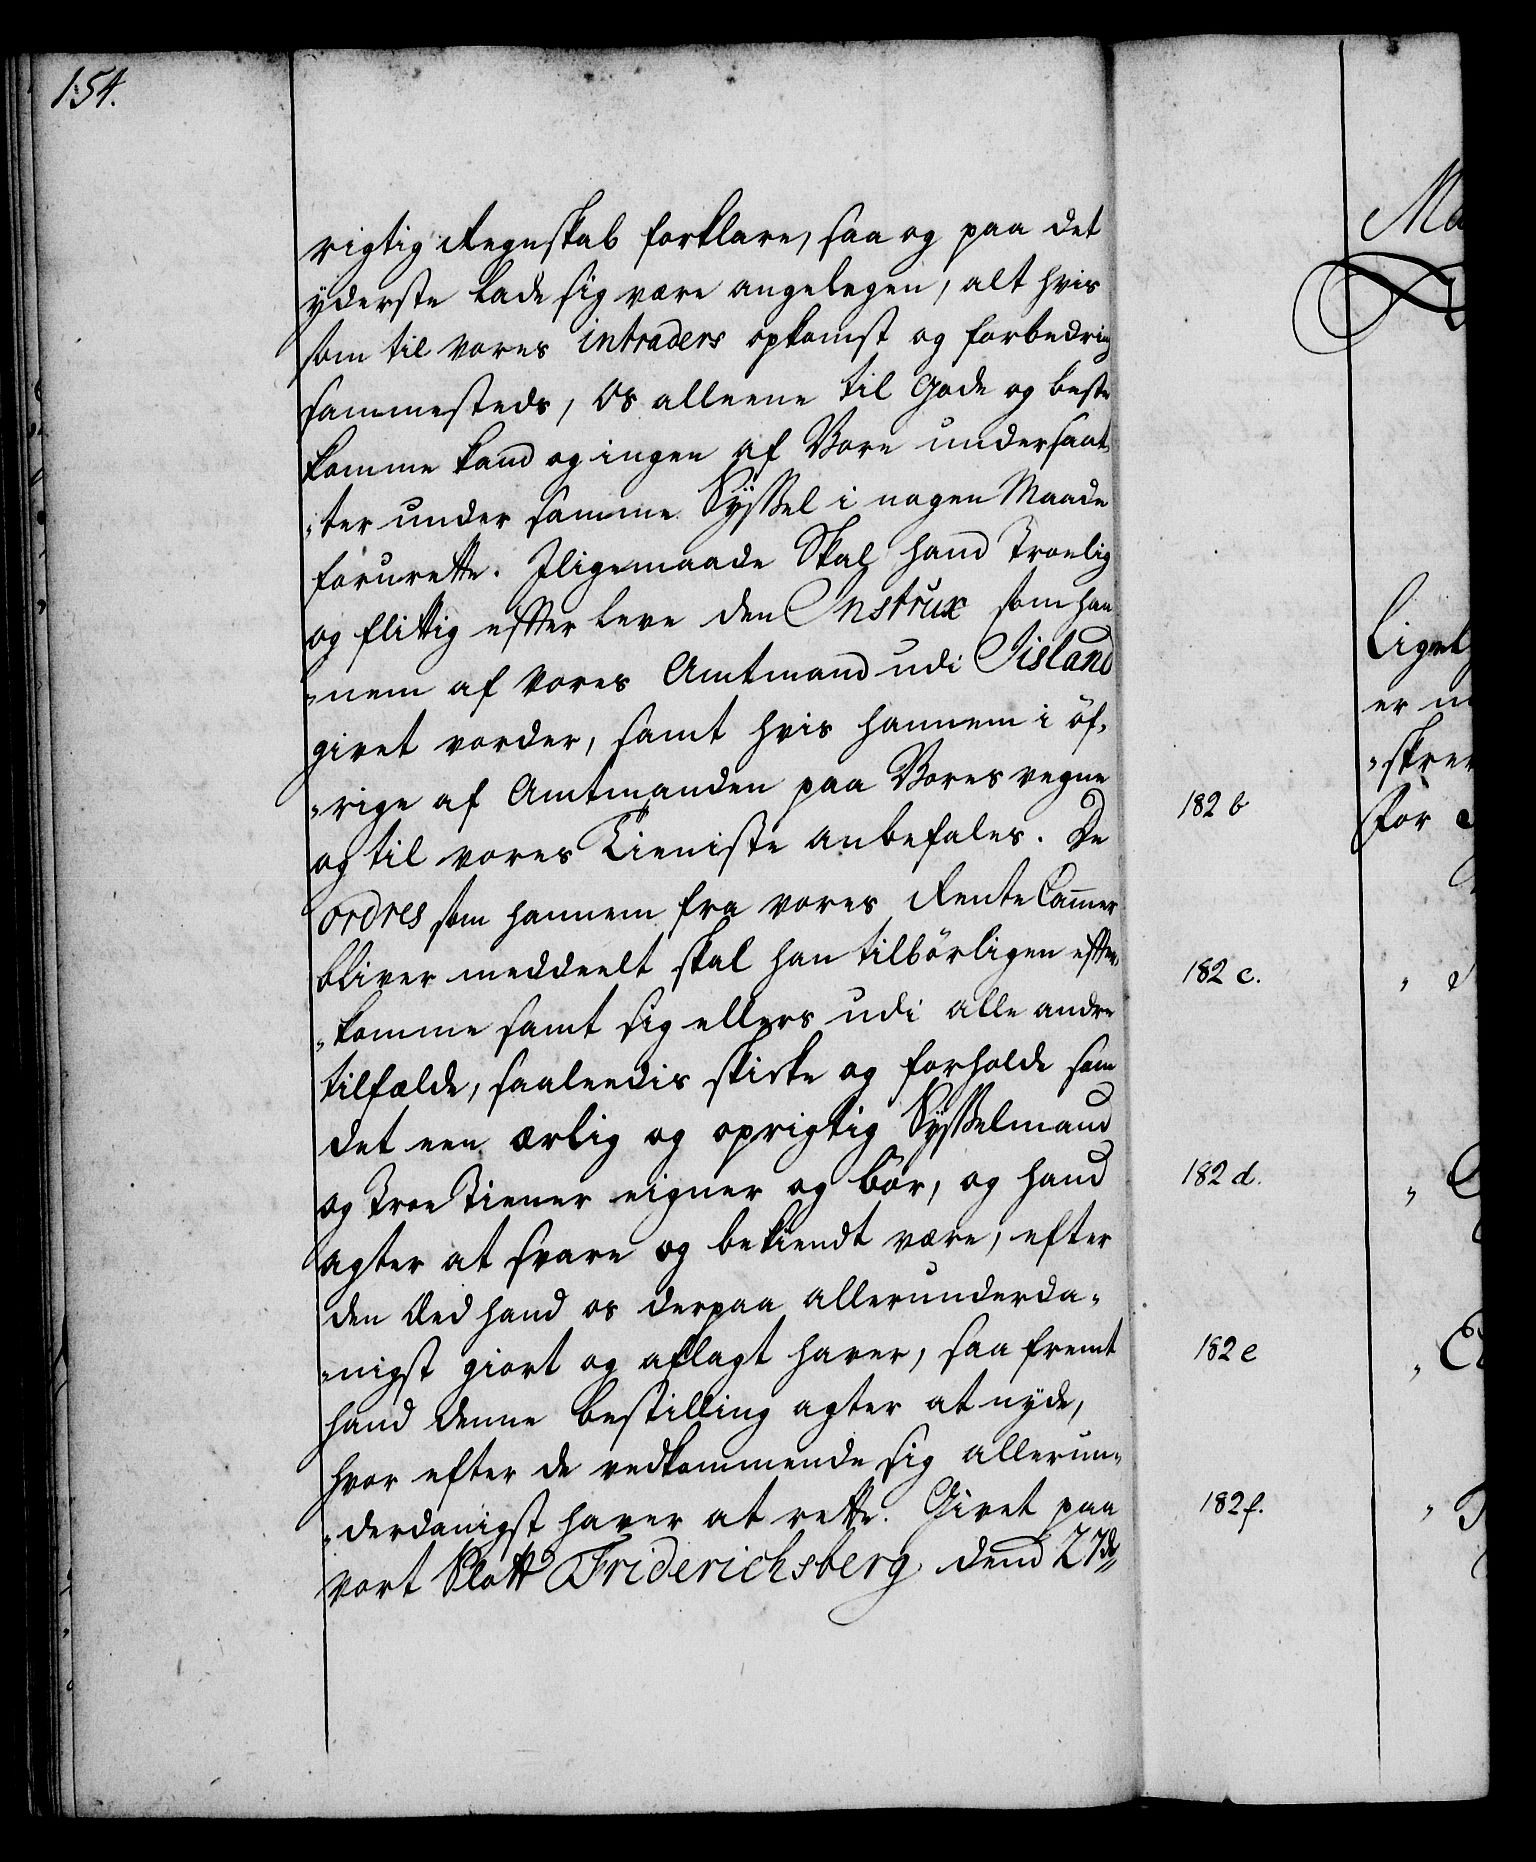 154.
rigtig Regnskab forklare, saa og paa det
yderste lade sig være angelegen, alt hvis
som til vores intraders opkomst og forbedring
sammesteds, Os alleene til Gode og beste
komme kand og ingen af Vore undersaat-
„ter under samme Syssel i nogen Maade
forurette. Iligemaade Skal hand Troelig
og flittig efter leve den Instrux som han-
„nem af vores Amtmand udi Iisland
givet vorder, samt hvis hannem i öf-
„rige af Amtmanden paa Vores vegne
og til vores Tieniste anbefales. De
ordres som hannem fra vores Rente Cam̄er
bliver meddeelt skal han tilbörligen efter-
„komme samt sig ellers udi alle andre
tilfælde, saaleedis skicke og forholde som
det een ærlig og oprigtig Sysselmand
og Troe Tiener eigner og bör, og hand
agter at svare og bekiendt være, efter
den Eed hand os derpaa allerunderda-
„nigst giort og aflagt haver, saa fremt
hand denne bestilling agter at nyde,
hvor efter de vedkommende sig allerun-
„derdanigst haver at rette. Givet paa
vort Slott Friderichsberg dend 27de
Ma
Liget
er
„skrev
182 b for
182 c. „
182 d. „
182 e „
182 f. „